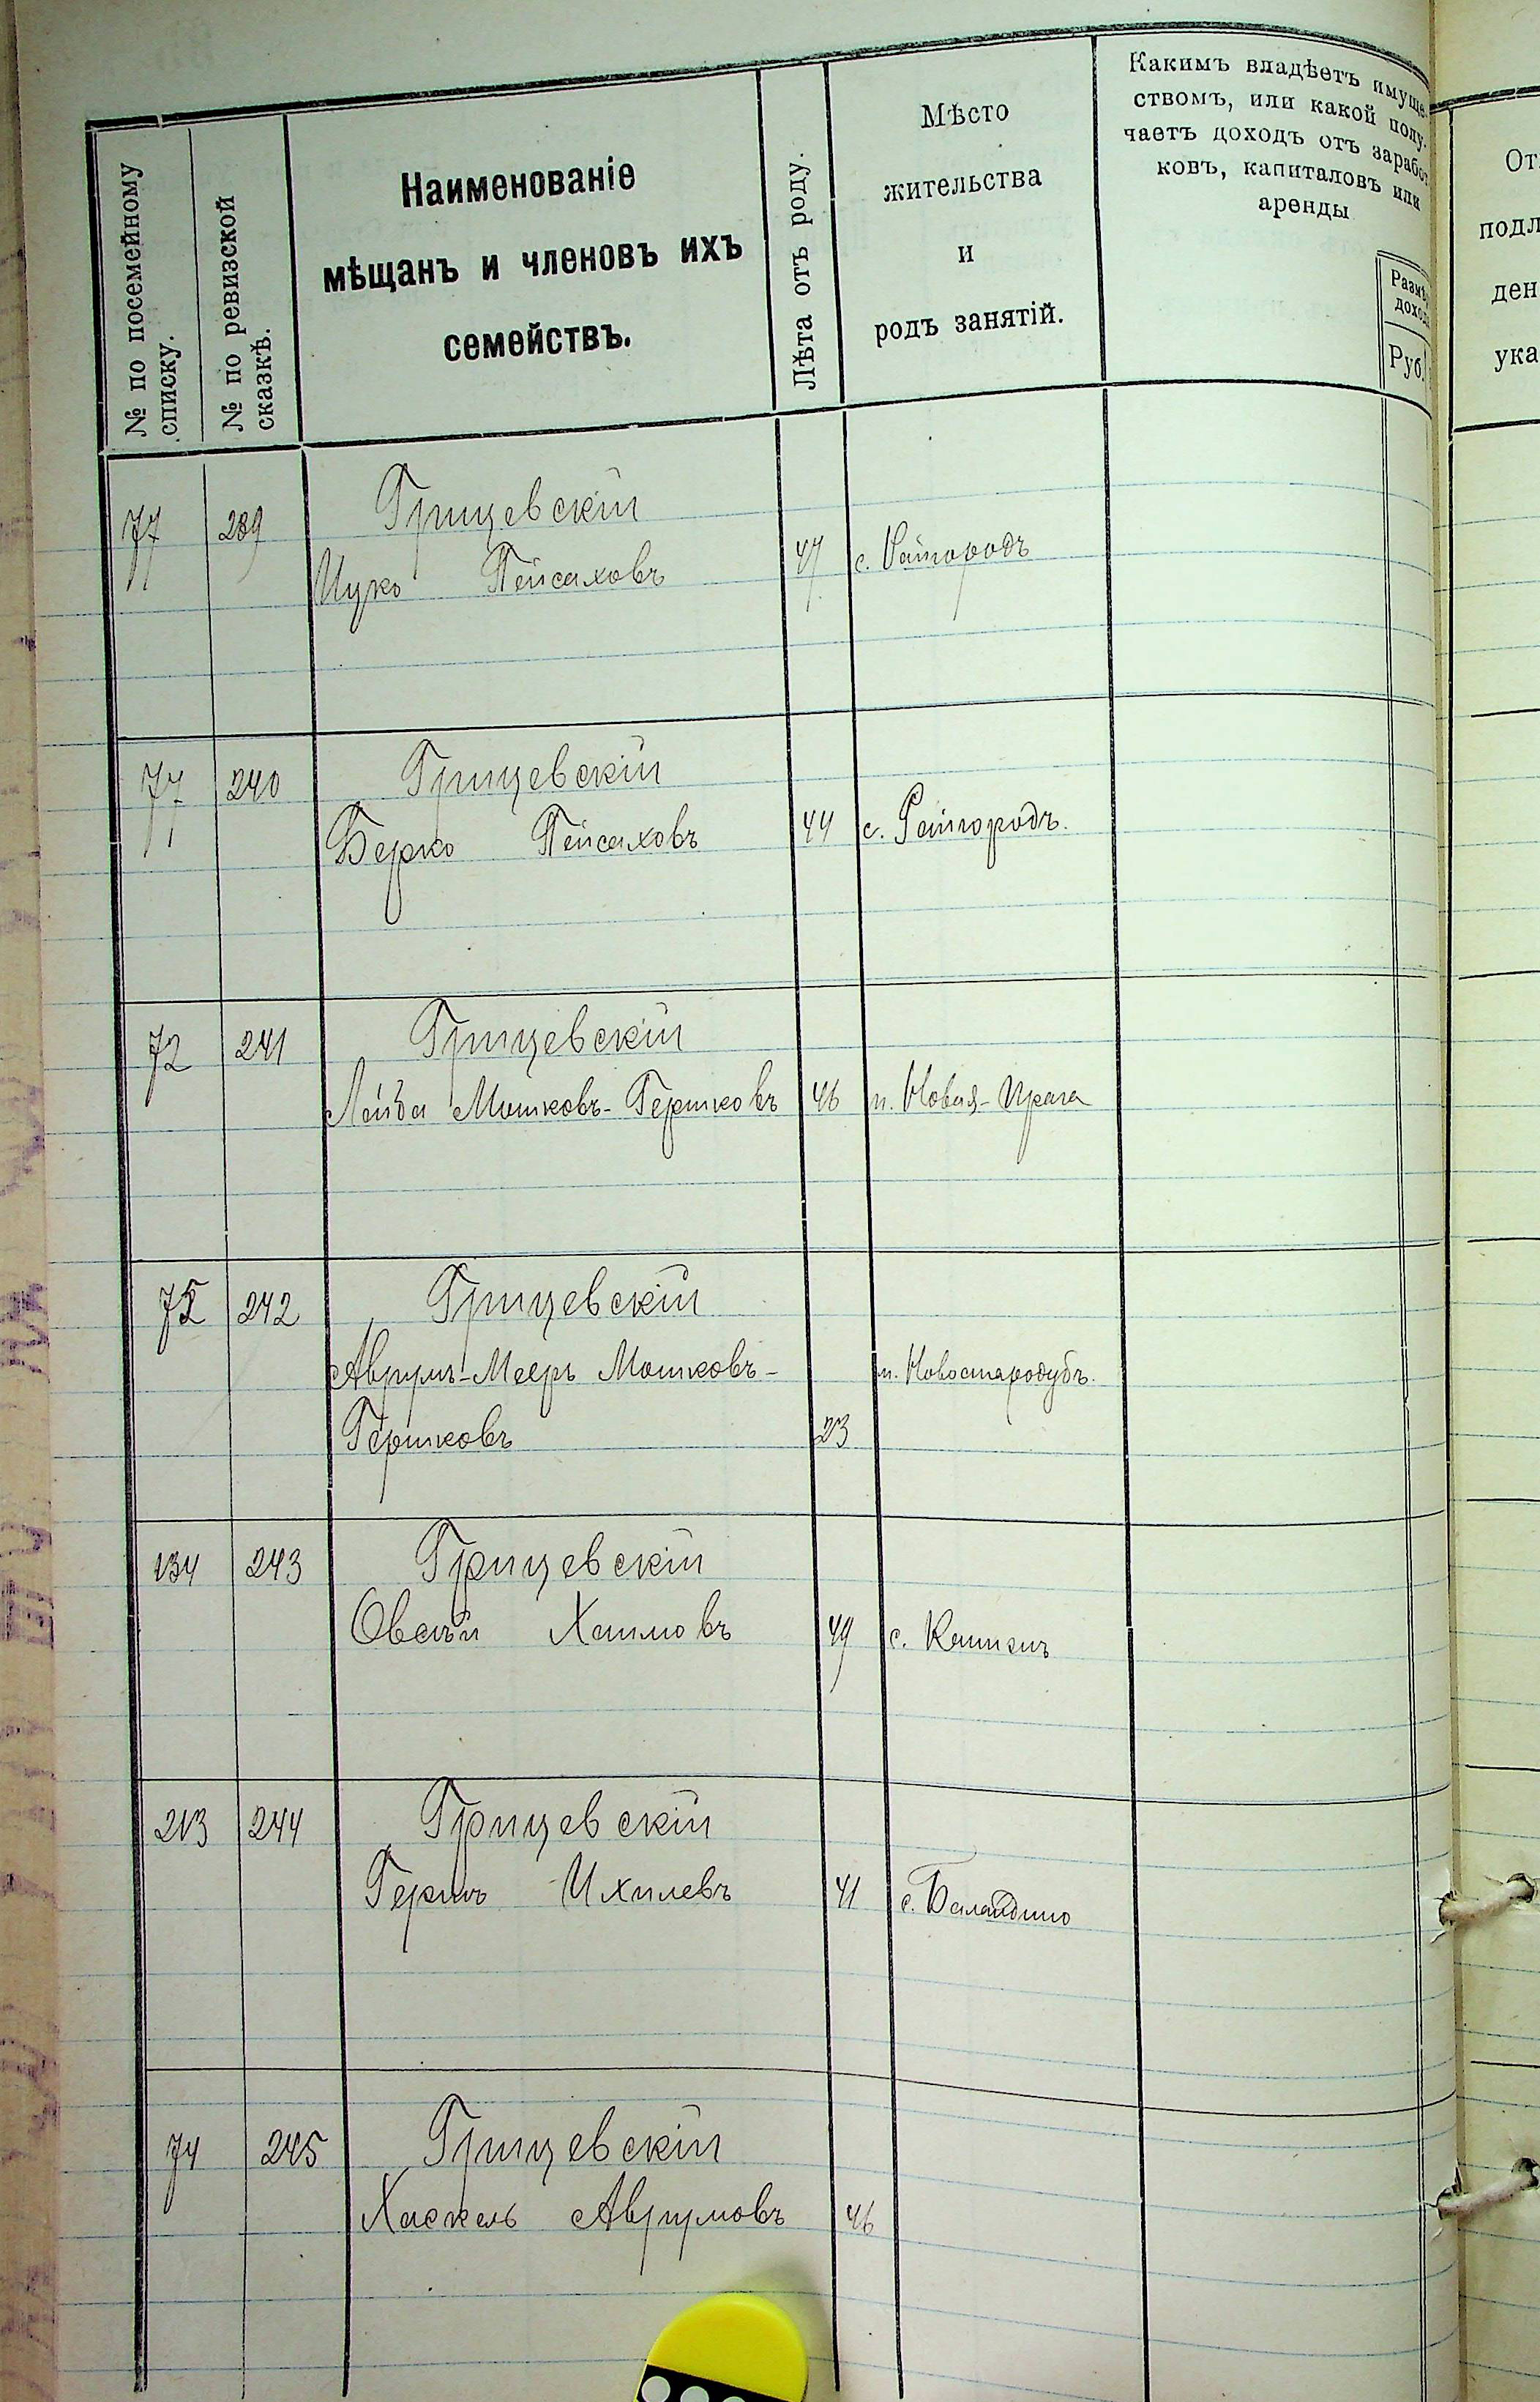 № по посемейному списку.
№ по ревизской сказкѣ.
Наименованіе
мѣщанъ и членовъ ихъ
семействъ.
Лѣта отъ роду.
Мѣсто
жительства
и
родъ занятій.
Какимъ владѣетъ имуще-
ствомъ, или какой полу-
чаетъ доходъ отъ заработ
ковъ, капиталовъ или
аренды
Размѣ
доход
Руб.
От
подл
ден
ука
77 239 Грищевскій
Ицко Пейсаховъ 47 с. Райгородъ
77 240 Грищевскій
Берко Пейсаховъ 44 с. Райгородъ.
72 241 Грищевскій
Лейба Мошковъ-Гершковъ 46 п. Новая-Прага
72 242 Грищевскій
Аврумъ-Мееръ Мошковъ-
п. Новостародубъ.
Гершковъ 23
134 243 Грищевскій
Овсѣй Хаимовъ 49 с.
213 244 Грищевскій
Гершъ Ихилевъ 41 с. Баландино
74 245 Грищевскій
Хаскель Аврумовъ 46